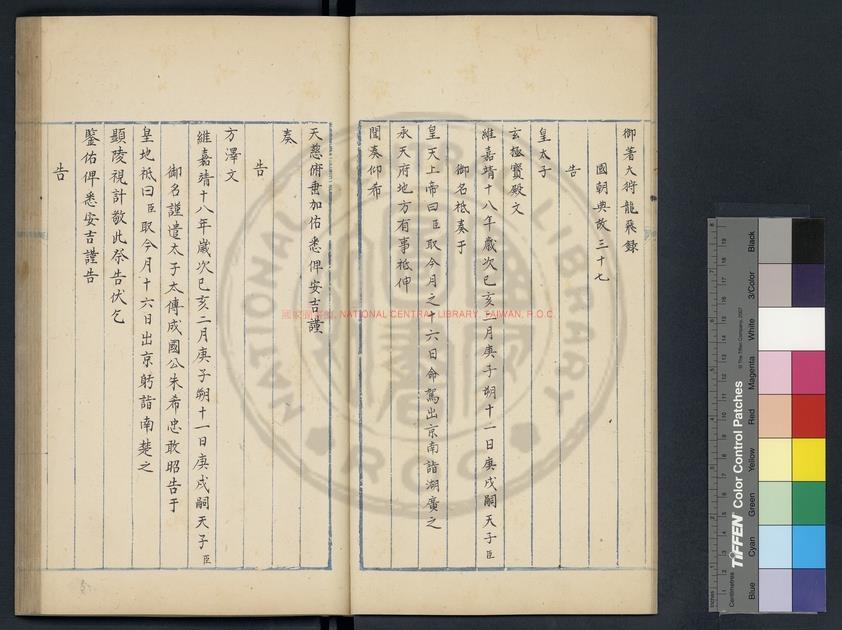 御著大狩龍飛録
國朝典故三十七
告
皇太子
玄極寶殿文
維嘉靖十八年歲次己亥二月庚子朔十一日庚戌嗣天子臣
御名祗奏于
皇天上帝曰臣取今月之十六日命駕出京南詣湖廣之
承天府地方有事祗伸
聞奏仰希
天慈俯垂加佑悉俾安吉謹
奏
告
方澤文
維嘉靖十八年歲次己亥二月庚子朔十一日庚戌嗣天子臣
御名謹遣太子太傅成國公朱希忠敢昭告于
皇地祗曰臣取今月十六日出京躬詣南楚之
顯陵視計敬此祭告伏乞
鑒佑俾悉安吉謹告
告
國家圖書館, NATIONAL CENTRAL LIBRARY, TAIWAN, R.O.C.
NATIONAL CENTRAL LIBRARY
R.O.C
Inches
Centimetres
TIFFEN Color Control Patches
© The Tiffen Company, 2007
Blue
Cyan
Green
Yellow
Red
Magenta
White
3/Color
Black